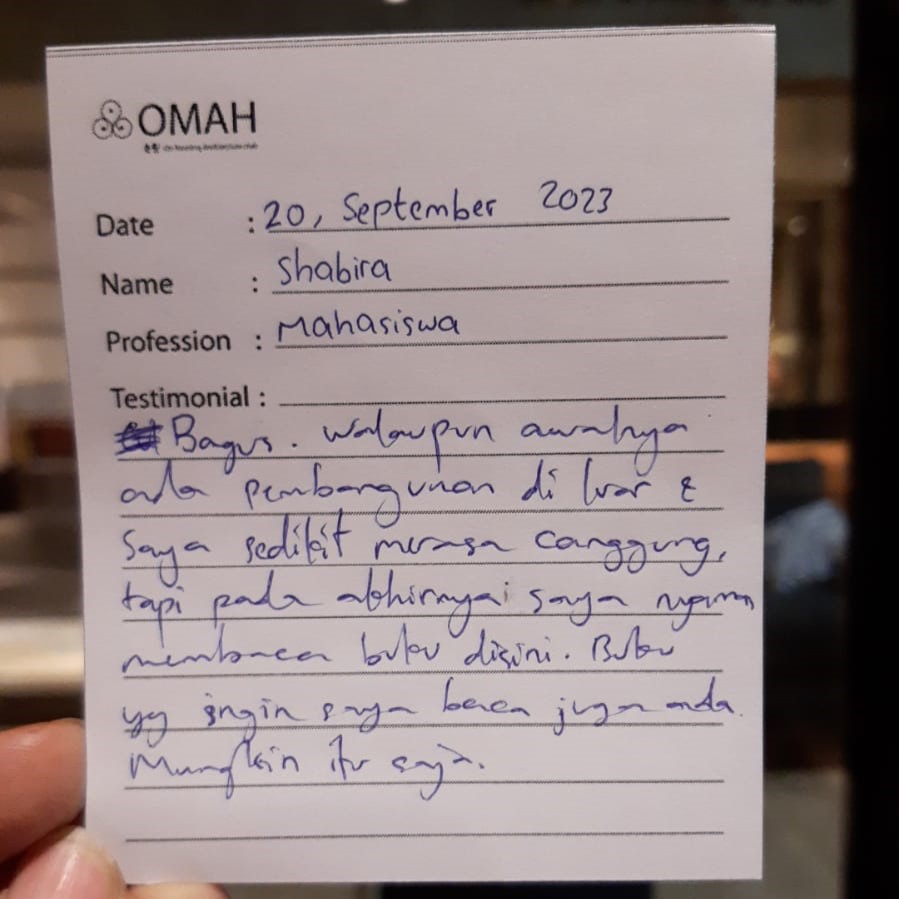 OMAH
Date : 20, September 2023
Name : Shabira
Profession : Mahasiswa
Testimonial :
Bagus. Walaupun awalnya
ada pembangunan di luar &
saya sedikit merasa canggung,
tapi pada akhirnya saya nyaman
membaca buku disini. Buku
yg ingin saya baca juga ada.
Mungkin itu saja.